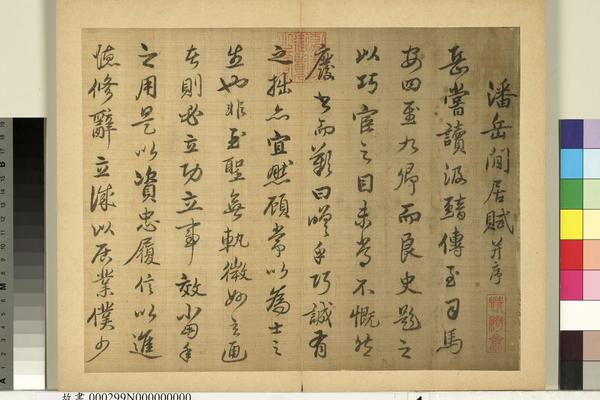 潘岳閒居賦并序
岳嘗讀汲黯傳至司馬
安四至九卿而良史題之
以巧宦之目未嘗不慨然
廢書而歎曰嗟乎巧誠有
之拙亦宜然顧常以為士之
生也非至聖無軌微妙玄通
者則必立功立事效當年
之用是以資忠履信以進
德修辭立誠以居業僕少
故書 000299N000000000